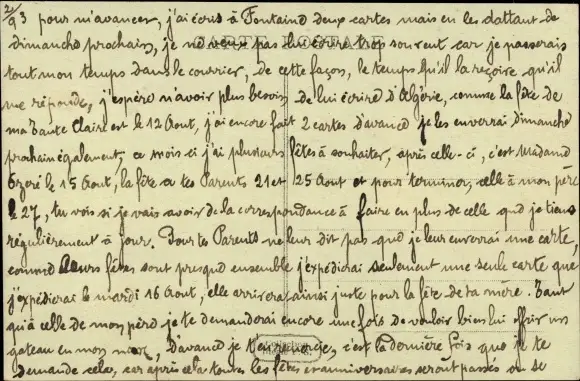 2/93 pour m'avancer, j'ai écris à Fontaine deux cartes mais en les dattant de
dimanche prochain, je ne veux pas lui écrire trop souvent car je passerais
CARTE POSTALE
tout mon temps dans le courrier, de cette façon, le temps qu'il la reçoive qu'il
me réponde, j'espère n'avoir plus besoin de lui écrire d'Algérie, comme la fête de
ma Tante Claire est le 12 Aout, j'ai encore fait 2 cartes d'avance je les enverrai dimanche
prochain également, ce mois-ci j'ai plusieurs fêtes à souhaiter, après celle-ci, c'est Madame
le 15 Aout, la fête a tes Parents 21 et 25 Aout et pour terminer, celle à mon père
le 27, tu vois si je vais avoir de la correspondance à faire en plus de celle que je tiens
régulièrement à jour. Pour tes Parents ne leur dit pas que je leur enverrai une carte,
comme leurs fêtes sont presque ensemble j'expédierai seulement une seule carte que
j'expédierai le mardi 16 Aout, elle arrivera ainsi juste pour la fête de ta mère. Tant
qu'à celle de mon père je te demanderai encore une fois de vouloir bien lui offrir un
gateau en mon nom, d'avance je te remercie, c'est la dernière fois que je te
demande cela, car après cela toutes les fêtes et anniversaires seront passés ou se